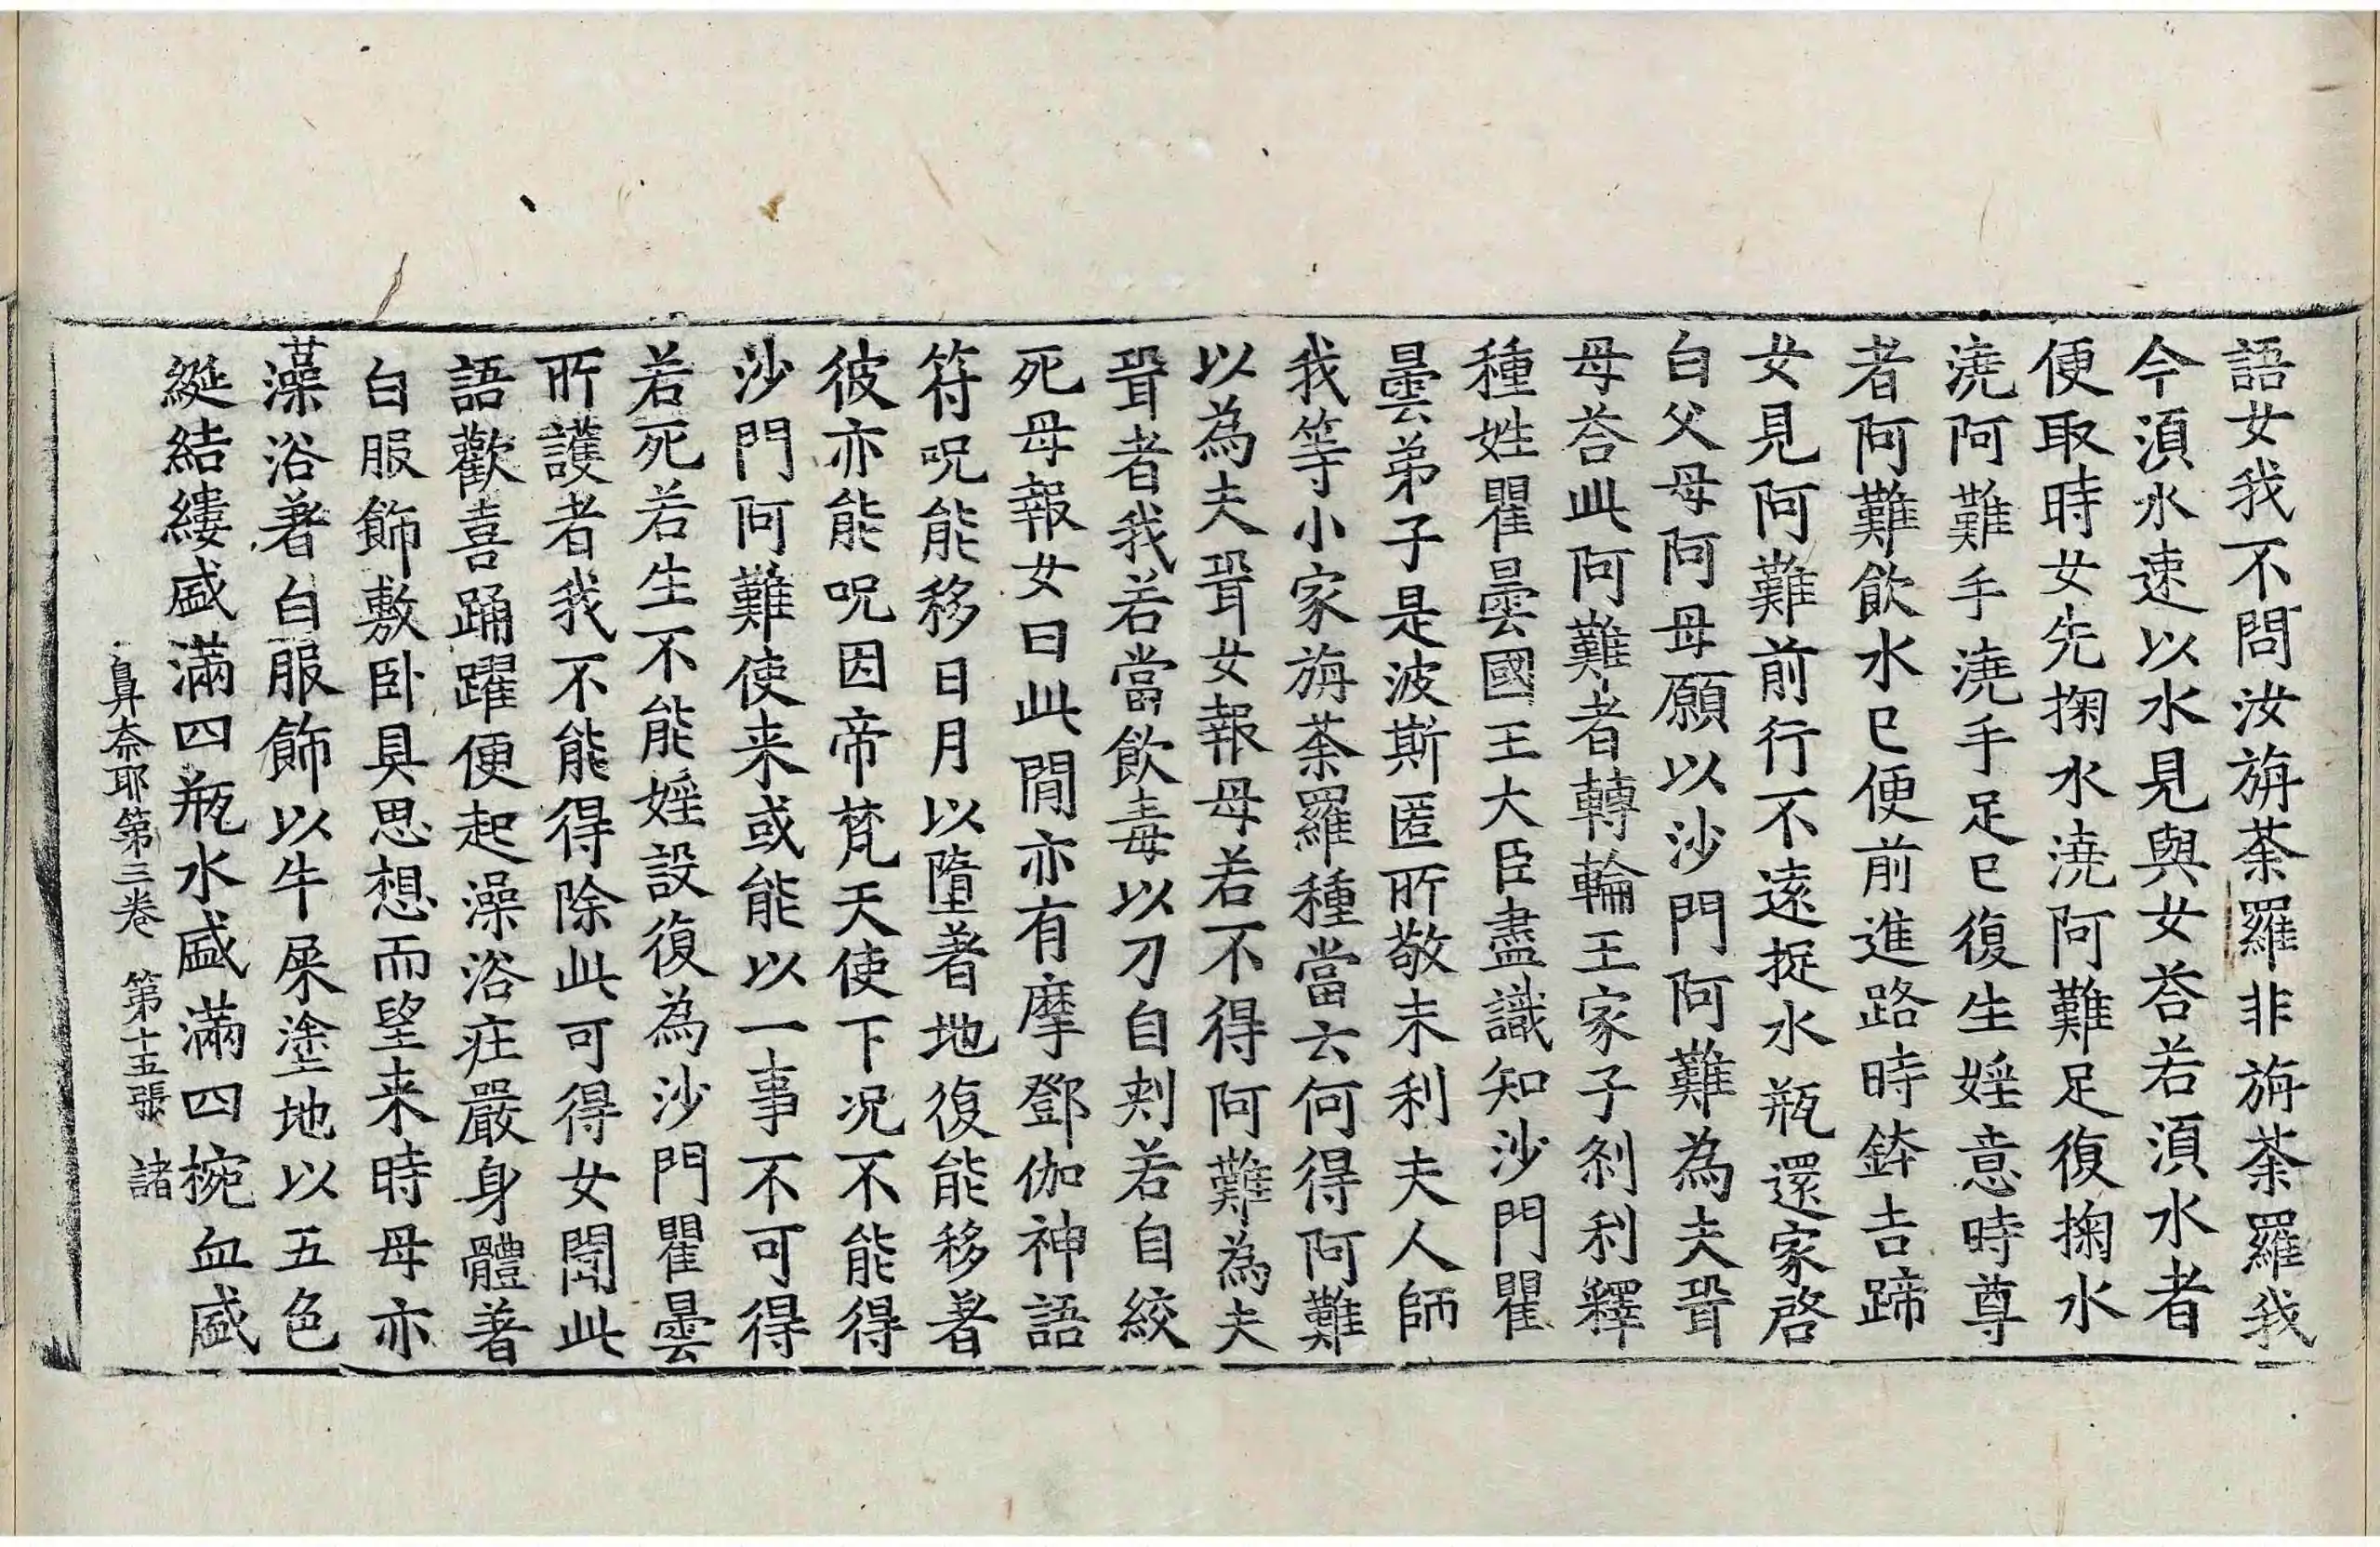 語女我不問汝旃荼羅非旃荼羅我
今湏水速以水見與女荅若湏水者
便取時女先掬水澆阿難足復掬水
澆阿難手澆手足已復生婬意時尊
者阿難飲水已便前進路時鉢吉蹄
女見阿難前行不遠捉水瓶還家啓
白父母阿母願以沙門阿難為夫壻
母荅此阿難者轉輪王家子刹利釋
種姓瞿曇國王大臣盡識知沙門瞿
曇弟子是波斯匿所敬末利夫人師
我等小家旃荼羅種當云何得阿難
以為夫壻女報母若不得阿難為夫
壻者我若當飲毒以刀自刺若自絞
死母報女曰此閒亦有摩鄧伽神語
符呪能移日月以墮著地復能移著
彼亦能呪因帝梵天使下况不能得
沙門阿難使来或能以一事不可得
若死若生不能婬設復為沙門瞿曇
所護者我不能得除此可得女聞此
語歡喜踊躍便起澡浴庄嚴身體著
白服飾敷卧具思想而望来時母亦
藻浴著白服飾以牛屎塗地以五色
綖結縷盛滿四瓶水盛滿四椀血盛
鼻奈耶第三卷 第十五張 諸